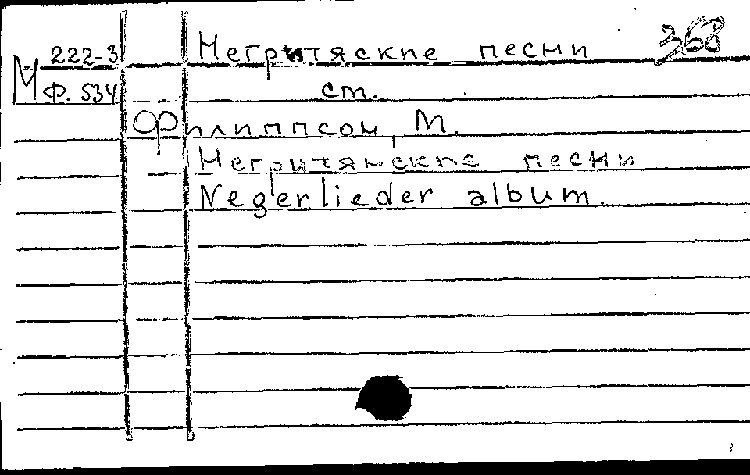 222-3 Негритяские песни 368
М Ф. 534 см.
Филиппсон, М.
Негритянские песни
Negerlieder album.